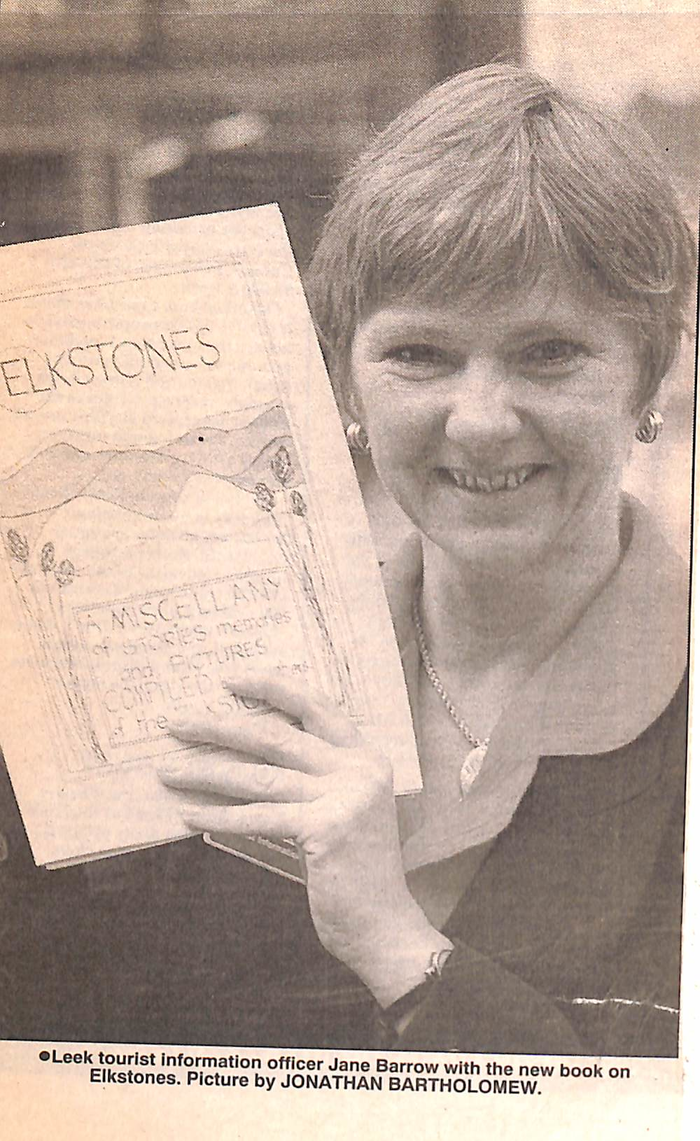 ELKSTONES
A MISCELLANY
of STORIES memories
and PICTURES
COMPILED
of the
●Leek tourist information officer Jane Barrow with the new book on
Elkstones. Picture by JONATHAN BARTHOLOMEW.